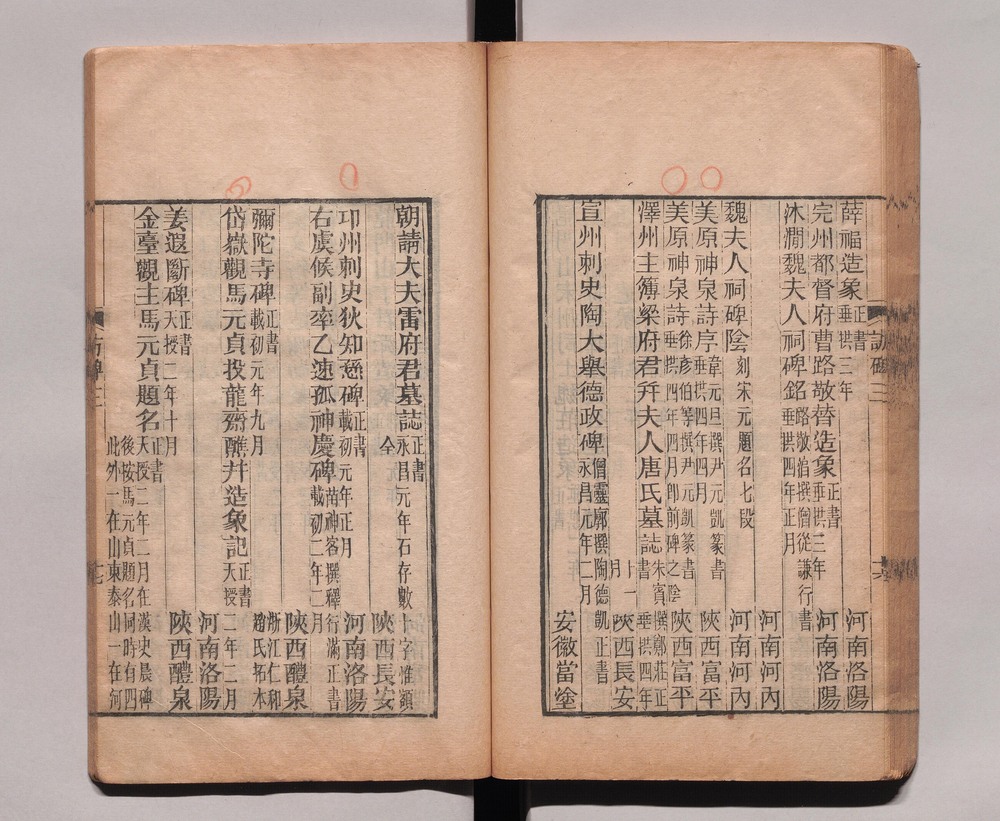 薛福造象 正書 垂拱三年 河南洛陽
完州都督府曹路敬替造象 正書 垂拱三年 河南洛陽
沐澗魏夫人祠碑銘 路敬洎撰僧從謙行書 垂拱四年正月 河南河內
魏夫人祠碑陰 刻宋元題名七段 河南河內
美原神泉詩序 韋元旦撰尹元凱篆書 垂拱四年四月 陝西富平
美原神泉詩 徐彥伯等撰尹元凱篆書 垂拱四年四月卽前碑之陰 陝西富平
澤州主簿梁府君幷夫人唐氏墓誌 朱賓撰鄭莊正書 垂拱四年十一月 陝西長安
宣州刺史陶大舉德政碑 僧靈廓撰陶德凱正書 永昌元年二月 安徽當塗
訪碑三
朝請大夫雷府君墓誌 正書 永昌元年石存數十字惟額全 陝西長安
邛州刺史狄知愻碑 正書 載初元年正月 河南洛陽
右虞候副率乙速孤神慶碑 苗神客撰釋行滿正書 載初二年二月 陝西醴泉
彌陀寺碑 正書 載初元年九月 浙江仁和趙氏拓本
岱嶽觀馬元貞投龍齋醮幷造象記 正書 天授二年二月
河南洛陽
姜遐斷碑 正書 天授二年十月 陝西醴泉
金臺觀主馬元貞題名 正書 天授二年二月在漢史晨碑後按馬元貞題名同時有四此外一在山東泰山一在河
訪碑三